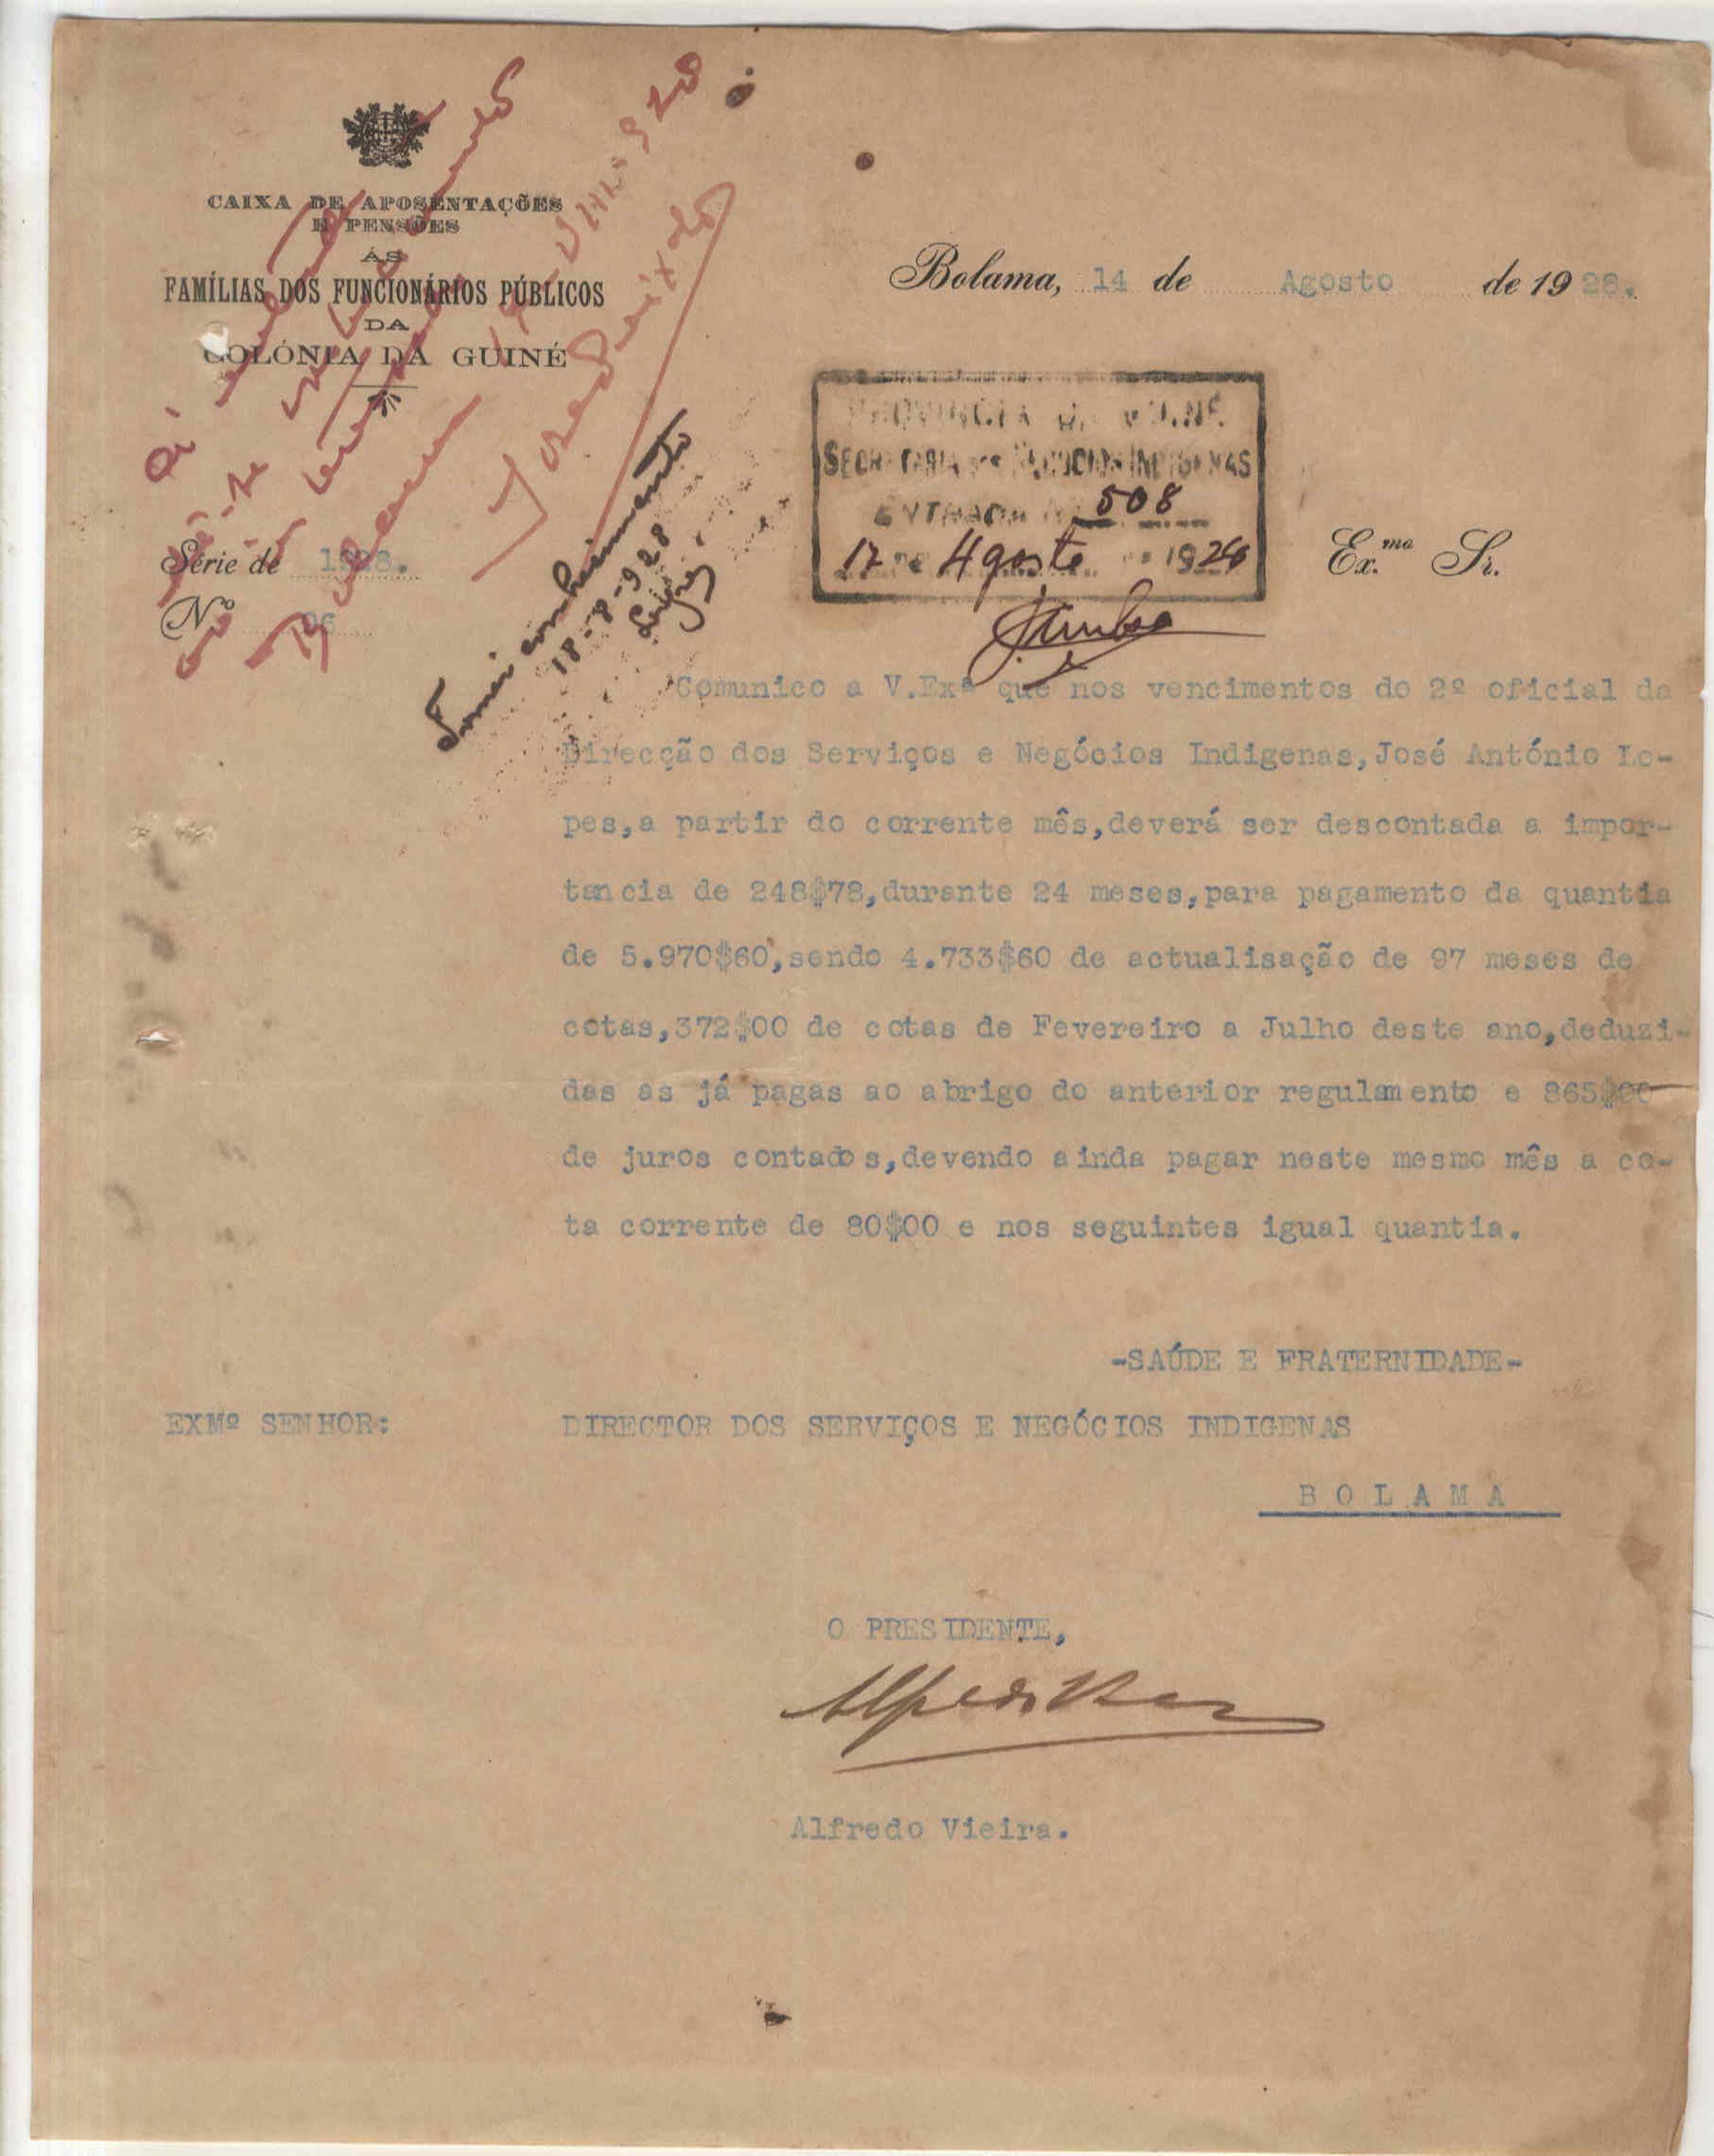 CAIXA DE APOSENTAÇÕES
E PENSÕES
ÁS
FAMÍLIAS DOS FUNCIONÁRIOS PÚBLICOS
DA
COLÓNIA DA GUINÉ
Bolama, 14 de Agosto de 1928.
PROVINCIA DA GUINÉ
SECRETARIA DOS NEGOCIOS INDIGENAS
ENTRADA Nº 508
17 DE Agosto DE 1928
Ex.mo Sr.
Série de 1928.
Nº 96
Tomei conhecimento
18-8-928
Lopes
Comunico a V.Exª que nos vencimentos do 2º oficial da
Direcção dos Serviços e Negócios Indigenas,José António Lo-
pes,a partir do corrente mês,deverá ser descontada a impor-
tancia de 248$78,durante 24 meses,para pagamento da quantia
de 5.970$60,sendo 4.733$60 de actualisação de 97 meses de
cotas,372$00 de cotas de Fevereiro a Julho deste ano,deduzi-
das as já pagas ao abrigo do anterior regulamento e 865$00
de juros contados,devendo ainda pagar neste mesmo mês a co-
ta corrente de 80$00 e nos seguintes igual quantia.
-SAÚDE E FRATERNIDADE-
EXMº SENHOR: DIRECTOR DOS SERVIÇOS E NEGÓCIOS INDIGENAS
BOLAMA
O PRESIDENTE,
Alfredo Vieira
Alfredo Vieira.